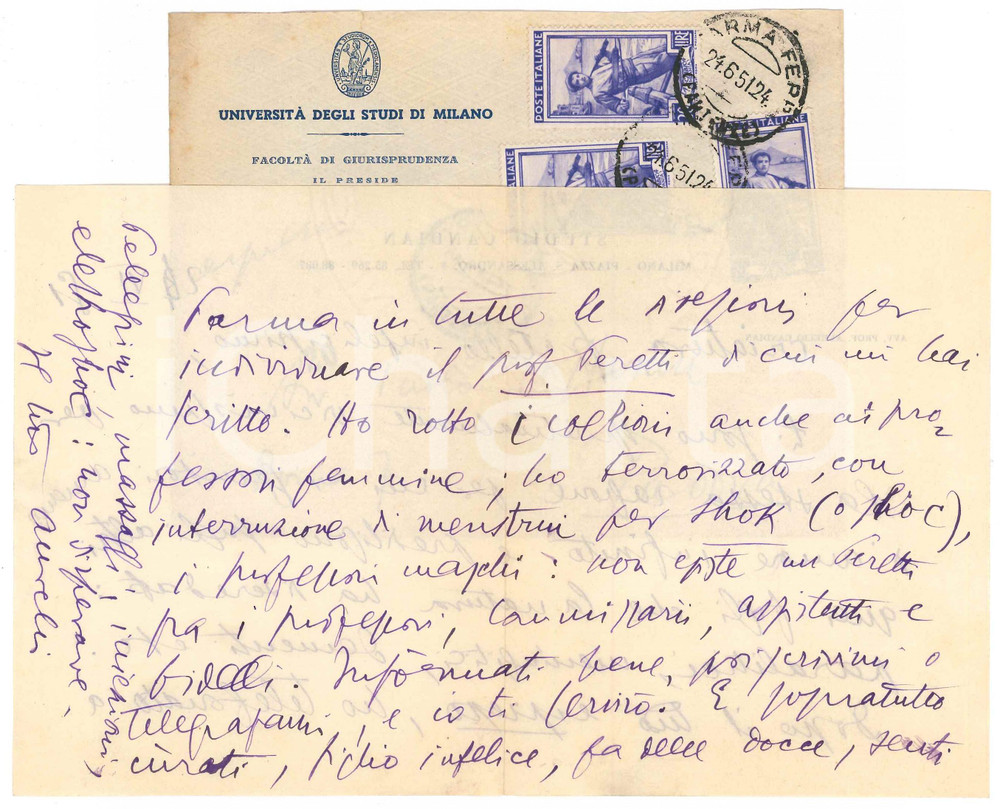 UNIVERSITÀ DEGLI STUDI DI MILANO
FACOLTÀ DI GIURISPRUDENZA
IL PRESIDE
POSTE ITALIANE
LIRE
PARMA FERR
24.6.51.24
POSTE ITALIANE
24.6.51.24
ITALIANE
STUDIO CANDIAN
MILANO - PIAZZA
Parma in tutte le direzioni per
individuare il prof. Peretti di cui mi hai
scritto. Ho rotto i coglioni anche ai pro=
fessori femmine; ho terrorizzato, con
interruzione di menstrui per shok (o shoc),
i professori maschi: non esiste un Peretti
fra i professori, commissari, assistenti e
bidelli. Informati bene, poi scrivimi o
telegrafami, e io ti servirò. E sopratutto
cùrati, figlio infelice, fa delle docce, senti
massaggi, iniezioni,
elettrochoc: non disperare,
il tuo Aurelio
icharta